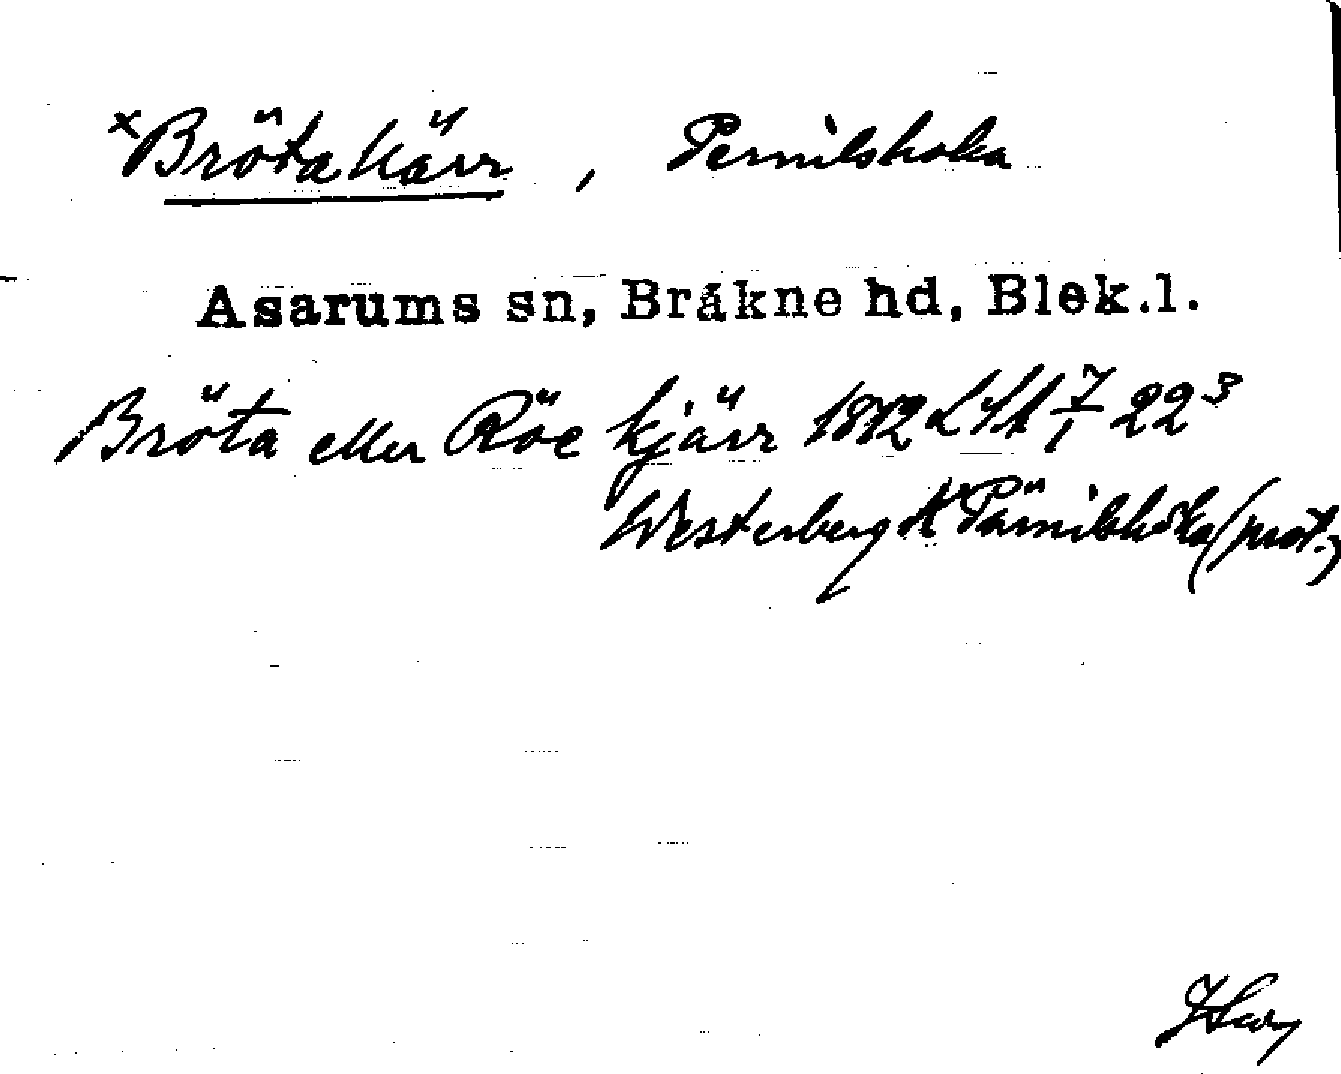 ×Bröta kärr, Pernilshoka
Asarums sn, Bräkne hd, Blek.l.
Bröta eller Röe kjärr 1812 LSA 22³
Westerberg Pärnilshöka (prot.)